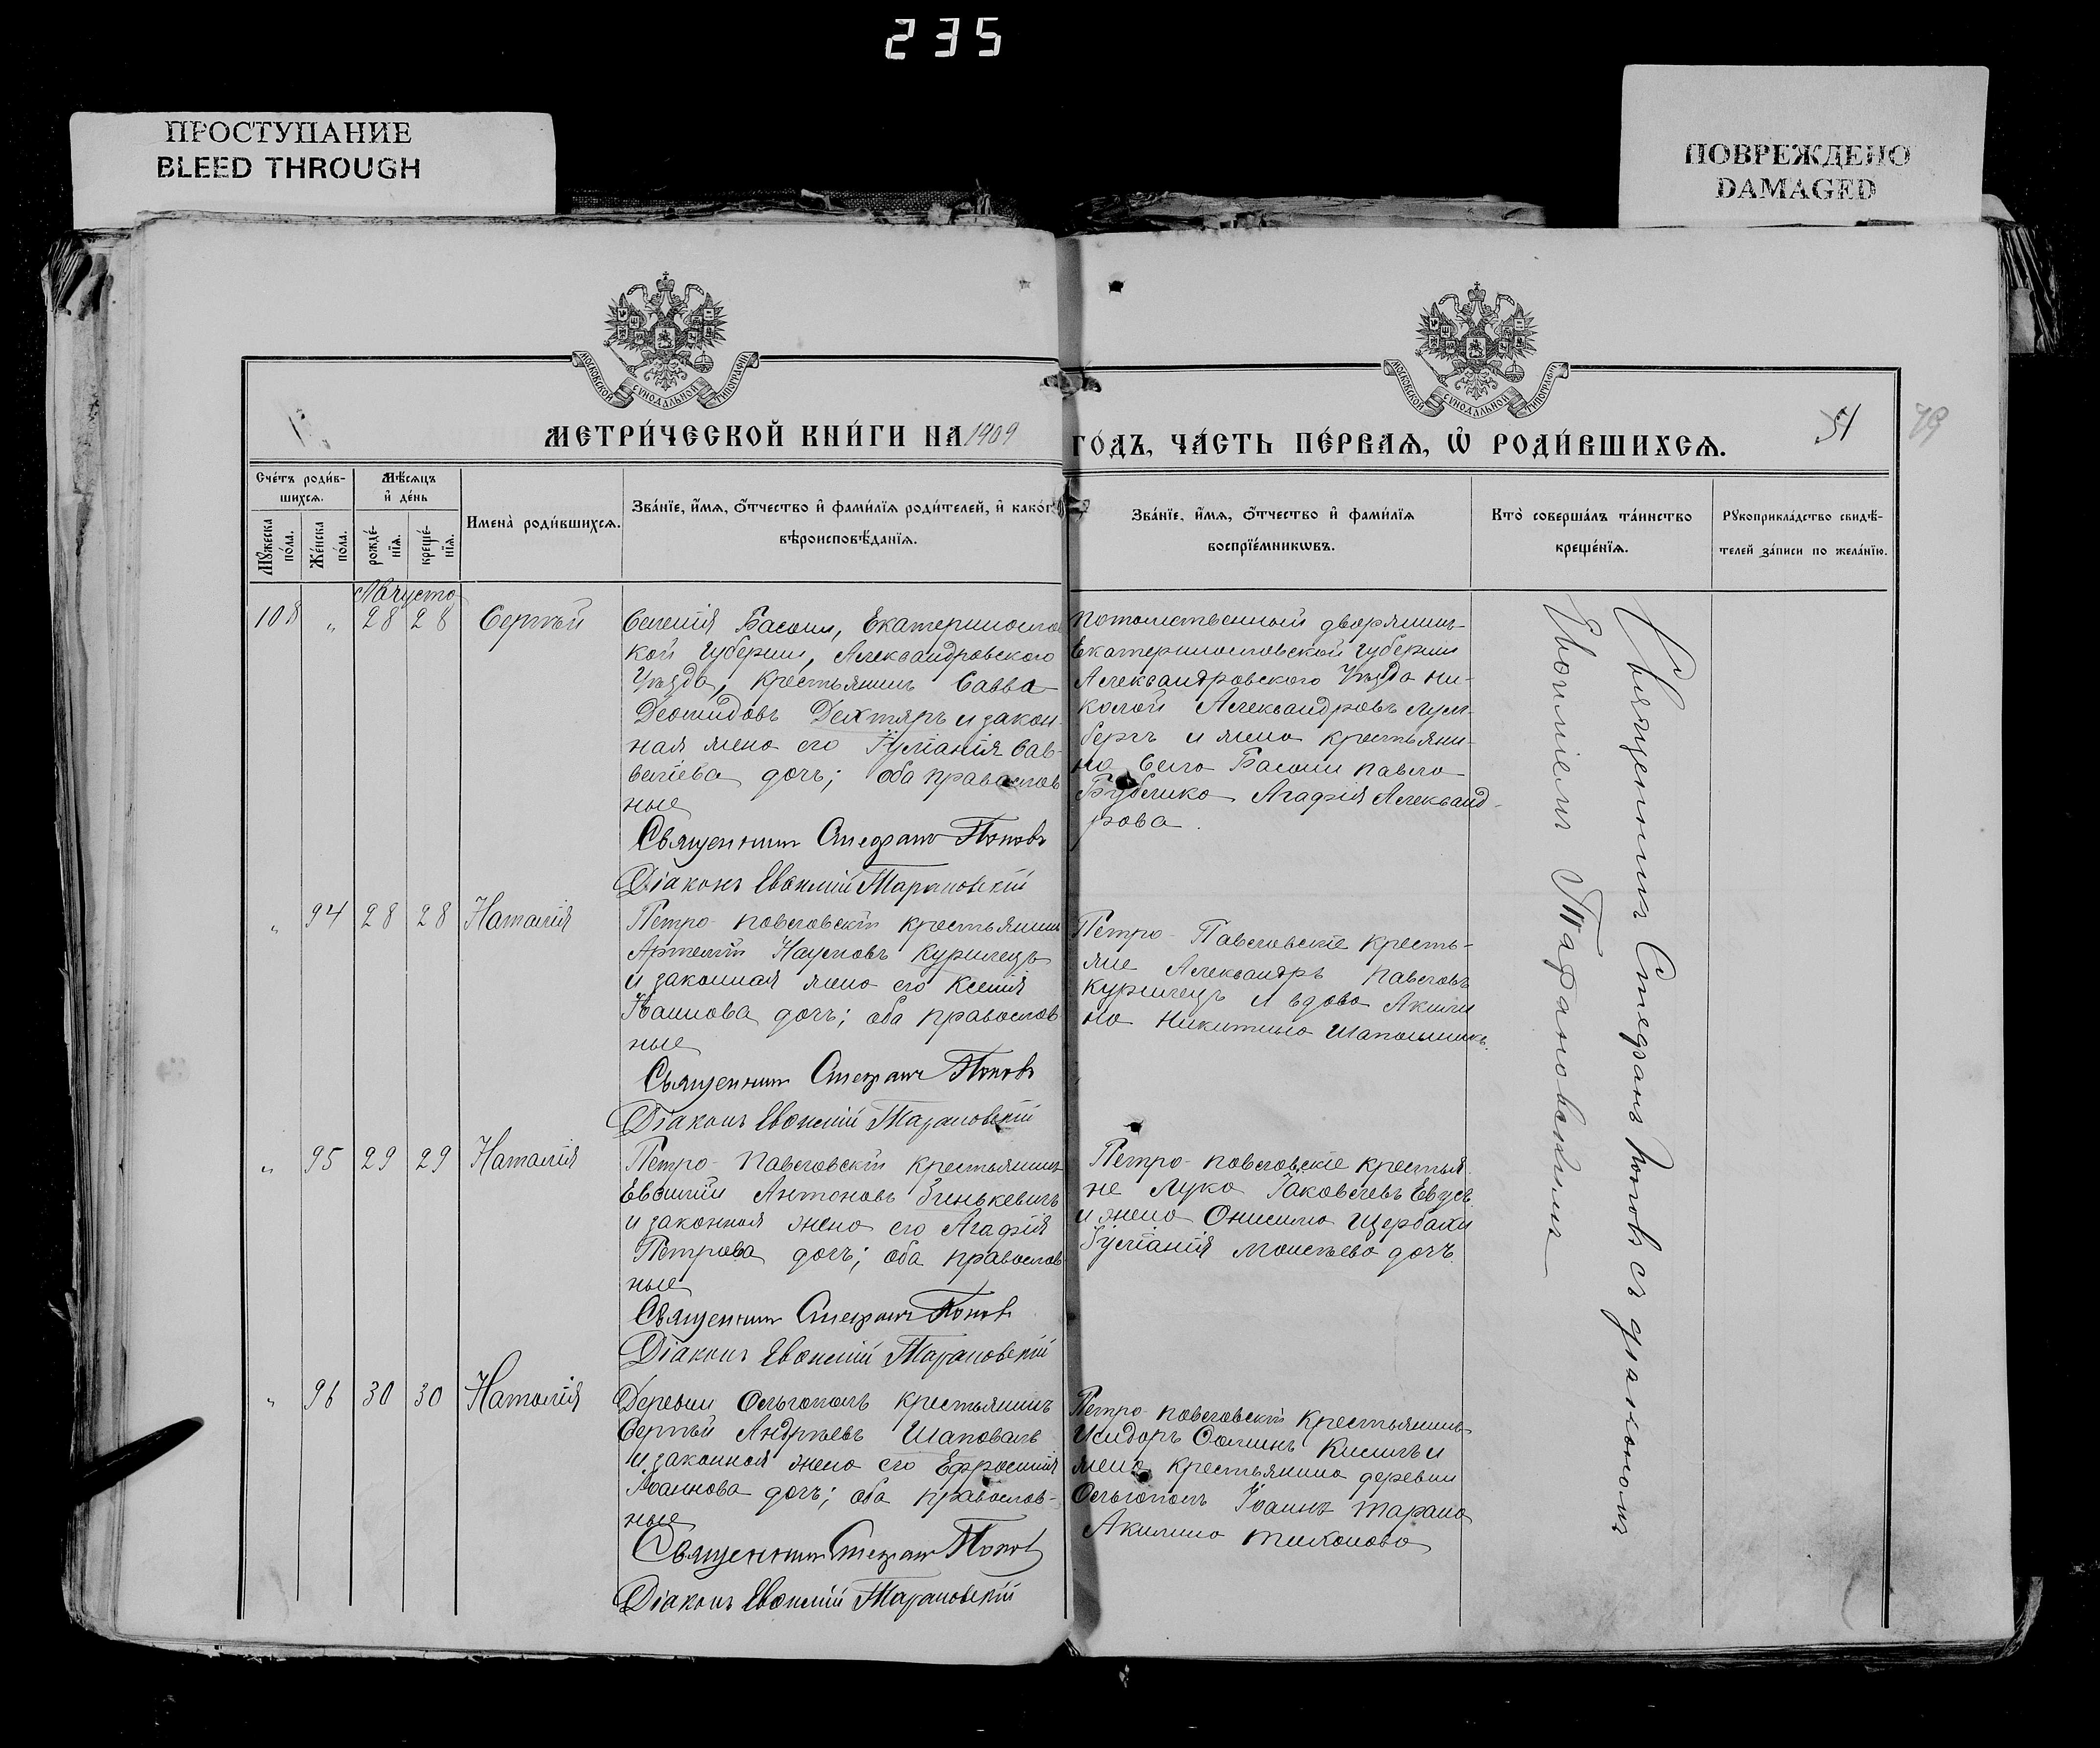 235
ПРОСТУПАНИЕ
BLEED THROUGH
ПОВРЕЖДЕНО
DAMAGED
МОСКОВСКОЙ СѴНОДАЛЬНОЙ ТИПОГРАФІИ
МОСКОВСКОЙ СѴНОДАЛЬНОЙ ТИПОГРАФІИ
МЕТРИ́ЧЕСКОЙ КНИ́ГИ НА 1909
ГО́ДЪ, ЧА́СТЬ ПЕ́РВАѦ, Ѡ҆ РОДИ́ВШИХСѦ.
51
79
Сче́тъ роди́в-
шихсѧ.
Мꙋ́жеска по́ла.
Же́нска по́ла.
Мѣ́сѧцъ
и҆ де́нь
рожде́-
нїѧ.
креще́-
нїѧ.
Имена̀ роди́вшихсѧ.
Зва́нїе, и҆́мѧ, ѻ҆́тчество и҆ фами́лїѧ роди́телей, и҆ како́г
вѣроисповѣ́данїѧ.
Зва́нїе, и҆́мѧ, ѻ҆́тчество и҆ фами́лїѧ
воспрїе́мникѡвъ.
Кто̀ соверша́лъ та́инство
креще́нїѧ.
Рꙋкоприкла́дство свидѣ́-
телей за́писи по жела́нїю.
Августа
108 „ 28 28 Сергѣй
Селенія Басани, Екатеринослав
кой Губерніи, Александровскаго
Уѣзда, крестьянинъ Савва
Деомидовъ Дехтярь и закон-
ная жена его Іуліанія Сав-
веліева дочь; оба православ
ные
Священникъ Стефанъ Поповъ
Діаконъ Евѳимій Тарановскій
Потомственный дворянинъ
Екатеринославской Губерніи
Александровскаго Уѣзда Ни-
колай Александровъ
бергъ и жена крестьяни-
на Села Басани Павла
Бублика Агафія Александ-
рова.
Священникъ Стефанъ Поповъ съ діакономъ
Евѳиміемъ Тарановскимъ
„ 94 28 28 Наталія
Петро-Павловскій крестьянинъ
Артемій Наумовъ Курилецъ
и законная жена его Ксенія
Іоаннова дочь; оба православ
ные
Священникъ Стефанъ Поповъ
Діаконъ Евѳимій Тарановскій
Петро-Павловскіе кресть-
яне Александръ Павловъ
Курилецъ и вдова Акили
на Никитина
„ 95 29 29 Наталія
Петро-Павловскій крестьянинъ
Евѳимій Антоновъ Зинькевичъ
и законная жена его Агафія
Петрова дочь; оба православ
ные
Священникъ Стефанъ Поповъ
Діаконъ Евѳимій Тарановскій
Петро-Павловскіе крестья
не Лука Іаковлевъ
и жена Онисима Щербаки
Іуліанія Моисѣева дочь.
„ 96 30 30 Наталія
Деревни Ольгополь крестьянинъ
Сергѣй Андреевъ Шаповалъ
и законная жена его Ефросинія
Іоаннова дочь; оба православ-
ные
Священникъ Стефанъ Поповъ
Діаконъ Евѳимій Тарановскій
Петро-Павловскій крестьянинъ
Исидоръ Ѳоминъ и
жена крестьянина деревни
Ольгополь Іоанна Тарана
Акилина Тихонова